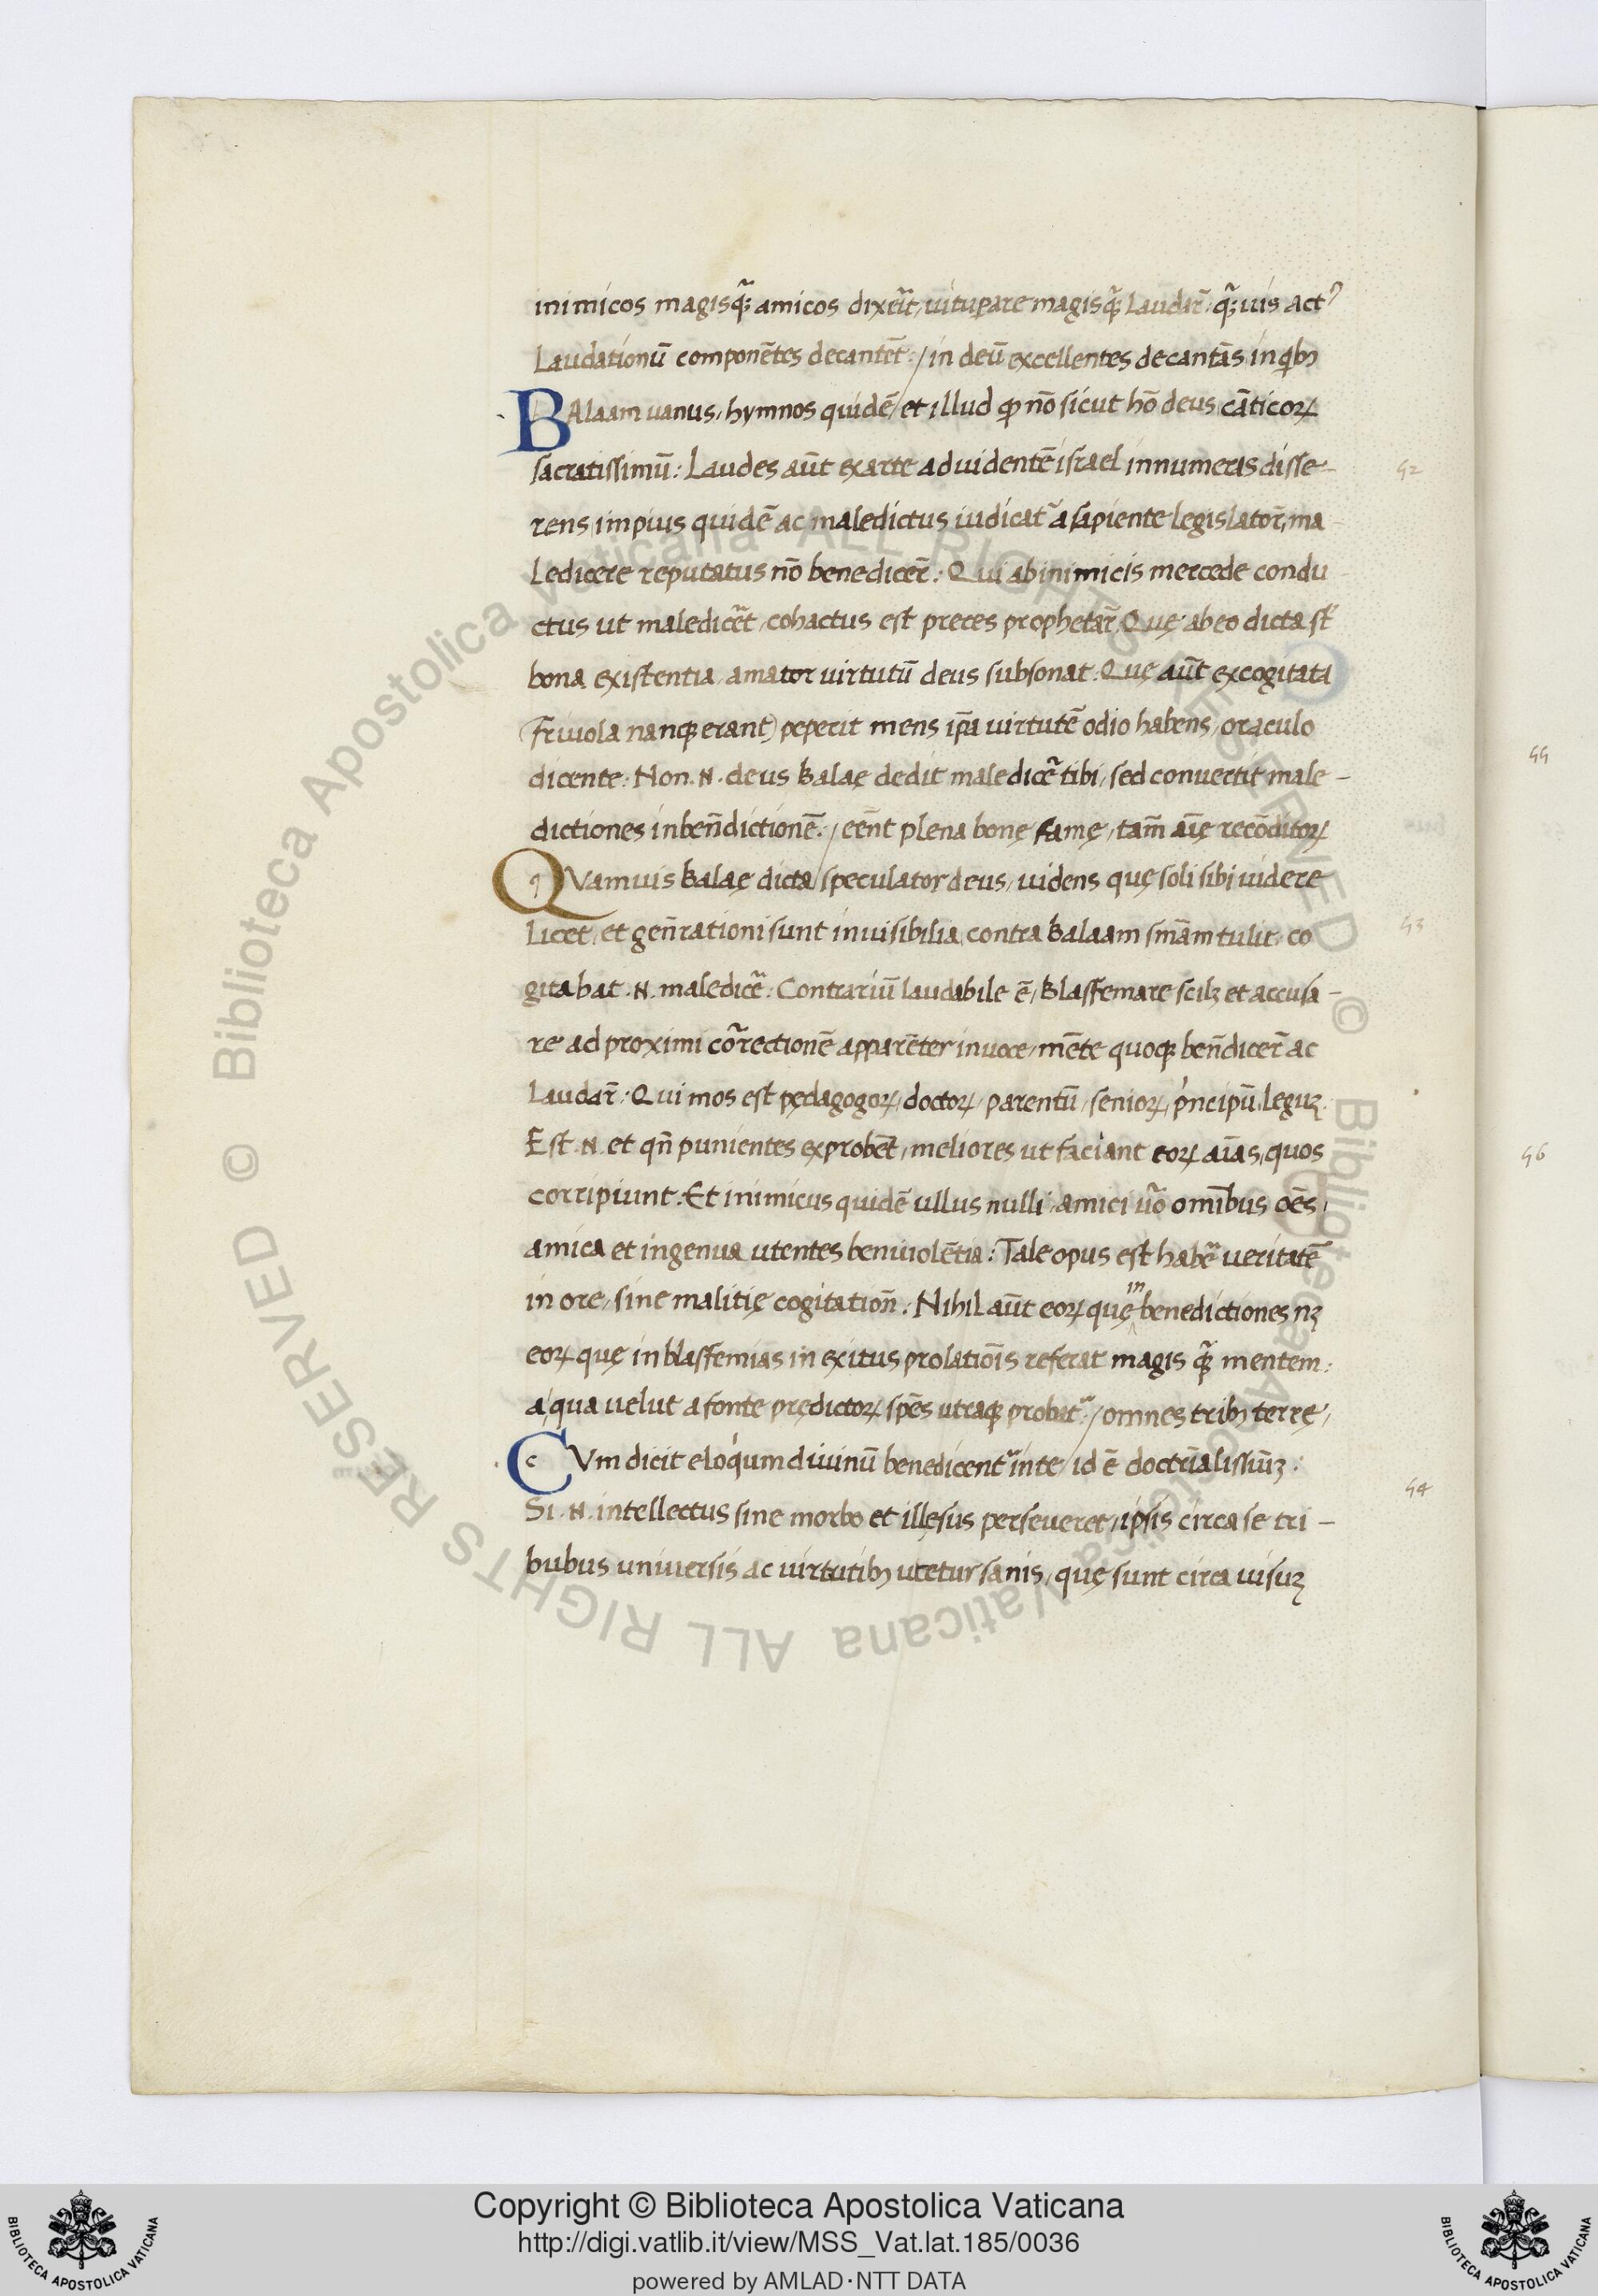 inimicos magisq̃; amicos dixer̃it, vitup̲are magisq̃; Laudar̃: q̃;uis act⁹
Laudationū componētes decantēt: / in deū excellentes decantās in qͥbȝ
BAlaam uanus, hymnos quidē / et illud ꝙ nō sicut hō deus cāticoꝝ
sacratissimū: Laudes aūt ex arte ad uidentē israel innumeras disse-
rens, impius quidē ac maledictus iudicat᷑ a sapiente legislator̃, ma
Ledicere reputatus nō benedicer̃: Qui ab inimicis mercede condu
ctus ut maledicer̃t, cohactus est preces prophetar̃. Quę ab eo dicta st̃
bona existentia, amator uirtutū deus subsonat. Quę aūt excogitata
(friuola nanqꝫ erant) peperit mens ip̄a uirtutē odio habens, oraculo
dicente: Non .N. deus balaę dedit maledicer̃ tibi, sed conuertit male-
dictiones in ben̄dictionē. / eēnt plena bonę famę, tam̄ aīę recōditoꝝ
QVamuis balaę dicta / speculator deus, uidens quę soli sibi uidere
Licet, et gen̄rationi sunt inuisibilia, contra balaam sn̄iam tulit, co
gitabat .N. maledicer̃: Contrariū laudabile ē, blasfemare scilꝫ et accusa-
re ad proximi corr̃ectionē apparēter in uoce, mēte quoqꝫ ben̄dicer̃ ac
Laudar̃: Qui mos est pędagogoꝝ, doctoꝝ, parentū, senioꝝ, pͥncipū, legūꝫ.
Est .N. et qn̄ punientes exprobēt, meliores ut faciant eoꝝ aīas, quos
corripiunt. Et inimicus quidē ullus nulli, amici uo᷑ omībus oēs,
amica et ingenua utentes beniuolētia: Tale opus est haber̃ ueritatē
in ore, sine malitię cogitation̄: Nihil aūt eoꝝ quę in benedictiones nꝫ
eoꝝ quę in blasfemias in exitus prolatiōis referat magis q̃; mentem:
a qua uelut a fonte prędictoꝝ, spēs utraqꝫ probat᷑: / omnes tribȝ terrę,
CVm dicit eloqͥum diuinū benedicent᷑ in te / id ē doctrīalissimꝫ:
Si .N. intellectus sine morbo et illęsus perseueret, ipsis circa se tri-
bubus uniuersis ac uirtutibȝ utetur sanis, quę sunt circa uisuꝫ
52
53
54
55
56
Copyright © Biblioteca Apostolica Vaticana
http://digi.vatlib.it/view/MSS_Vat.lat.185/0036
powered by AMLAD·NTT DATA
BIBLIOTECA APOSTOLICA VATICANA
BIBLIOTECA APOSTOLICA VATICANA
© Biblioteca Apostolica Vaticana ALL RIGHTS RESERVED © Biblioteca Apostolica Vaticana ALL RIGHTS RESERVED